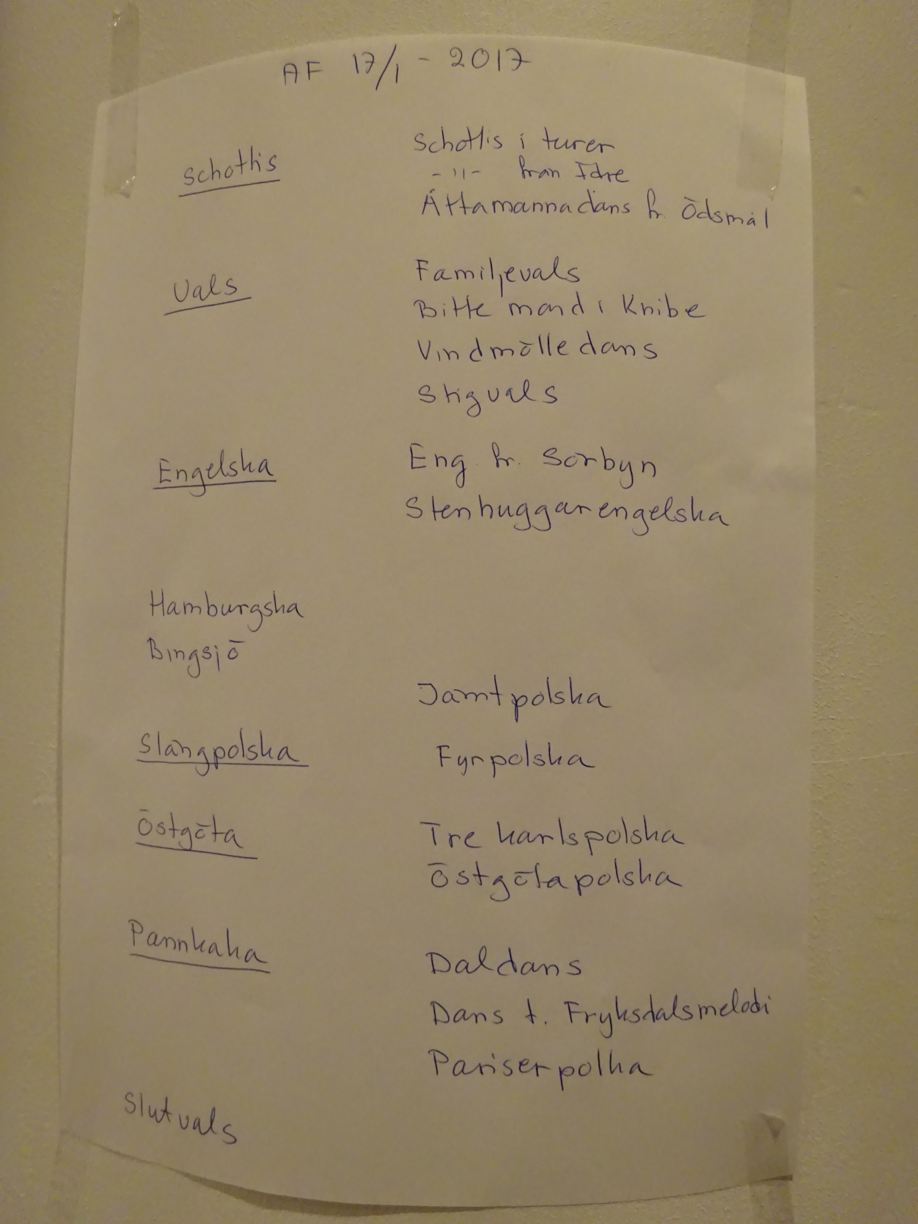 AF 17/1 - 2017
Schottis
Schottis i turer
- " - från Idre
Åttamannadans fr. Ödsmål
Vals
Familjevals
Bitte mand i Knibe
Vindmölledans
Stigvals
Engelska
Eng fr. Sörbyn
Stenhuggarengelska
Hamburgska
Bingsjö
Jämtpolska
Slängpolska
Fyrpolska
Östgöta
Tre karlspolska
Östgötapolska
Pannkaka
Daldans
Dans t. Fryksdalsmelodi
Pariserpolka
Slutvals